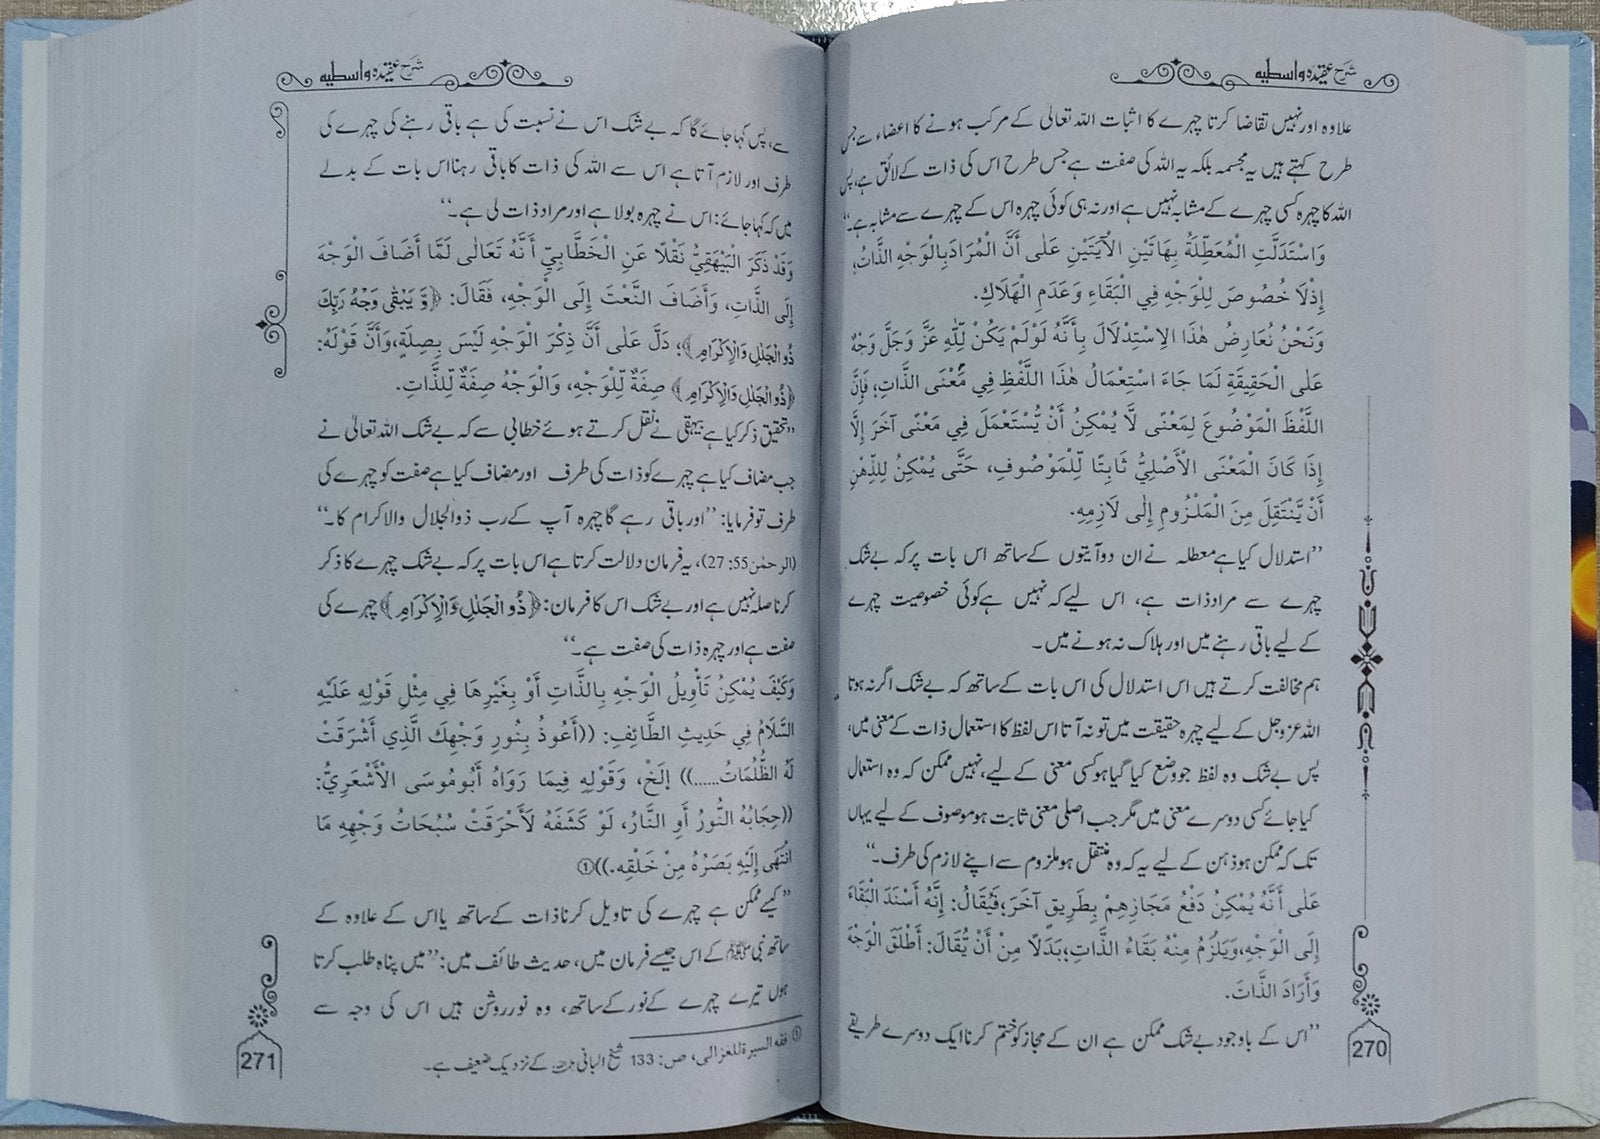 شرح عقیدہ واسطیہ
علاوہ اور نہیں تقاضا کرتا چہرے کا اثبات اللہ تعالیٰ کے مرکب ہونے کا اعضاء سے جس
طرح کہتے ہیں یہ مجسمہ بلکہ یہ اللہ کی صفت ہے جس طرح اس کی ذات کے لائق ہے، پس
اللہ کا چہرہ کسی چہرے کے مشابہ نہیں ہے اور نہ ہی کوئی چہرہ اس کے چہرے سے مشابہ ہے۔‘‘
وَاسْتَدَلَّتِ الْمُعَطِّلَةُ بِهَاتَيْنِ الْآيَتَيْنِ عَلٰى أَنَّ الْمُرَادَ بِالْوَجْهِ الذَّاتُ،
إِذْ لَا خُصُوصَ لِلْوَجْهِ فِي الْبَقَاءِ وَعَدَمِ الْهَلَاكِ.
وَنَحْنُ نُعَارِضُ هٰذَا الِاسْتِدْلَالَ بِأَنَّهُ لَوْ لَمْ يَكُنْ لِلّٰهِ عَزَّ وَجَلَّ وَجْهٌ
عَلٰى الْحَقِيقَةِ لَمَا جَاءَ اسْتِعْمَالُ هٰذَا اللَّفْظِ فِي مَّعْنَى الذَّاتِ؛ فَإِنَّ
اللَّفْظَ الْمَوْضُوعَ لِمَعْنًى لَّا يُمْكِنُ أَنْ يُّسْتَعْمَلَ فِي مَعْنًى آخَرَ إِلَّا
إِذَا كَانَ الْمَعْنَى الْأَصْلِيُّ ثَابِتًا لِّلْمَوْصُوفِ، حَتَّى يُمْكِنُ لِلذِّهْنِ
أَنْ يَّنْتَقِلَ مِنَ الْمَلْزُومِ إِلٰى لَازِمِهِ.
’’استدلال کیا ہے معطلہ نے ان دو آیتوں کے ساتھ اس بات پر کہ بے شک
چہرے سے مراد ذات ہے، اس لیے کہ نہیں ہے کوئی خصوصیت چہرے
کے لیے باقی رہنے میں اور ہلاک نہ ہونے میں۔
ہم مخالفت کرتے ہیں اس استدلال کی اس بات کے ساتھ کہ بے شک اگر نہ ہوتا
اللہ عزوجل کے لیے چہرہ حقیقت میں تو نہ آتا اس لفظ کا استعمال ذات کے معنی میں،
پس بے شک وہ لفظ جو وضع کیا گیا ہو کسی معنی کے لیے، نہیں ممکن کہ وہ استعمال
کیا جائے کسی دوسرے معنی میں مگر جب اصلی معنی ثابت ہو موصوف کے لیے یہاں
تک کہ ممکن ہو ذہن کے لیے یہ کہ وہ منتقل ہو ملزوم سے اپنے لازم کی طرف۔‘‘
عَلٰى أَنَّهُ يُمْكِنُ دَفْعُ مَجَازِهِمْ بِطَرِيقٍ آخَرَ؛ فَيُقَالُ: إِنَّهُ أَسْنَدَ الْبَقَاءَ
إِلَى الْوَجْهِ، وَيَلْزَمُ مِنْهُ بَقَاءُ الذَّاتِ؛ بَدَلًا مِنْ أَنْ يُّقَالَ: أَطْلَقَ الْوَجْهَ
وَأَرَادَ الذَّاتَ.
’’اس کے باوجود بے شک ممکن ہے ان کے مجاز کو ختم کرنا ایک دوسرے طریقے
270
شرح عقیدہ واسطیہ
سے، پس کہا جائے گا کہ بے شک اس نے نسبت کی ہے باقی رہنے کی چہرے کی
طرف اور لازم آتا ہے اس سے اللہ کی ذات کا باقی رہنا اس بات کے بدلے
میں کہ کہا جائے: اس نے چہرہ بولا ہے اور مراد ذات لی ہے۔‘‘
وَقَدْ ذَكَرَ الْبَيْهَقِيُّ نَقْلًا عَنِ الْخَطَّابِيِّ أَنَّهُ تَعَالٰى لَمَّا أَضَافَ الْوَجْهَ
إِلَى الذَّاتِ، وَأَضَافَ النَّعْتَ إِلَى الْوَجْهِ، فَقَالَ: ﴿وَّ يَبْقٰى وَجْهُ رَبِّكَ
ذُو الْجَلٰلِ وَالْاِكْرَامِ﴾؛ دَلَّ عَلٰى أَنَّ ذِكْرَ الْوَجْهِ لَيْسَ بِصِلَةٍ، وَأَنَّ قَوْلَهُ:
﴿ذُو الْجَلٰلِ وَالْاِكْرَامِ﴾ صِفَةٌ لِّلْوَجْهِ، وَالْوَجْهُ صِفَةٌ لِّلذَّاتِ.
’’تحقیق ذکر کیا ہے بیہقی نے نقل کرتے ہوئے خطابی سے کہ بے شک اللہ تعالیٰ نے
جب مضاف کیا ہے چہرے کو ذات کی طرف اور مضاف کیا ہے صفت کو چہرے کی
طرف تو فرمایا: ’’اور باقی رہے گا چہرہ آپ کے رب ذوالجلال والاکرام کا۔‘‘
(الرحمٰن 55: 27)، یہ فرمان دلالت کرتا ہے اس بات پر کہ بے شک چہرے کا ذکر
کرنا صلہ نہیں ہے اور بے شک اس کا فرمان: ﴿ذُو الْجَلٰلِ وَالْاِكْرَامِ﴾ چہرے کی
صفت ہے اور چہرہ ذات کی صفت ہے۔‘‘
وَكَيْفَ يُمْكِنُ تَأْوِيلُ الْوَجْهِ بِالذَّاتِ أَوْ بِغَيْرِهَا فِي مِثْلِ قَوْلِهِ عَلَيْهِ
السَّلَامُ فِي حَدِيثِ الطَّائِفِ: ((أَعُوذُ بِنُورِ وَجْهِكَ الَّذِي أَشْرَقَتْ
لَهُ الظُّلُمَاتُ......)) إِلَخْ، وَقَوْلِهِ فِيمَا رَوَاهُ أَبُو مُوسَى الْأَشْعَرِيُّ:
((حِجَابُهُ النُّورُ أَوِ النَّارُ، لَوْ كَشَفَهُ لَأَحْرَقَتْ سُبُحَاتُ وَجْهِهِ مَا
انْتَهَى إِلَيْهِ بَصَرُهُ مِنْ خَلْقِهِ.))①
’’کیسے ممکن ہے چہرے کی تاویل کرنا ذات کے ساتھ یا اس کے علاوہ کے
ساتھ نبی ﷺ کے اس جیسے فرمان میں، حدیث طائف میں: ’’میں پناہ طلب کرتا
ہوں تیرے چہرے کے نور کے ساتھ، وہ نور روشن ہیں اس کی وجہ سے
① فقه السيرة للغزالی، ص: 133 شیخ البانی رحمہ اللہ کے نزدیک ضعیف ہے۔
271